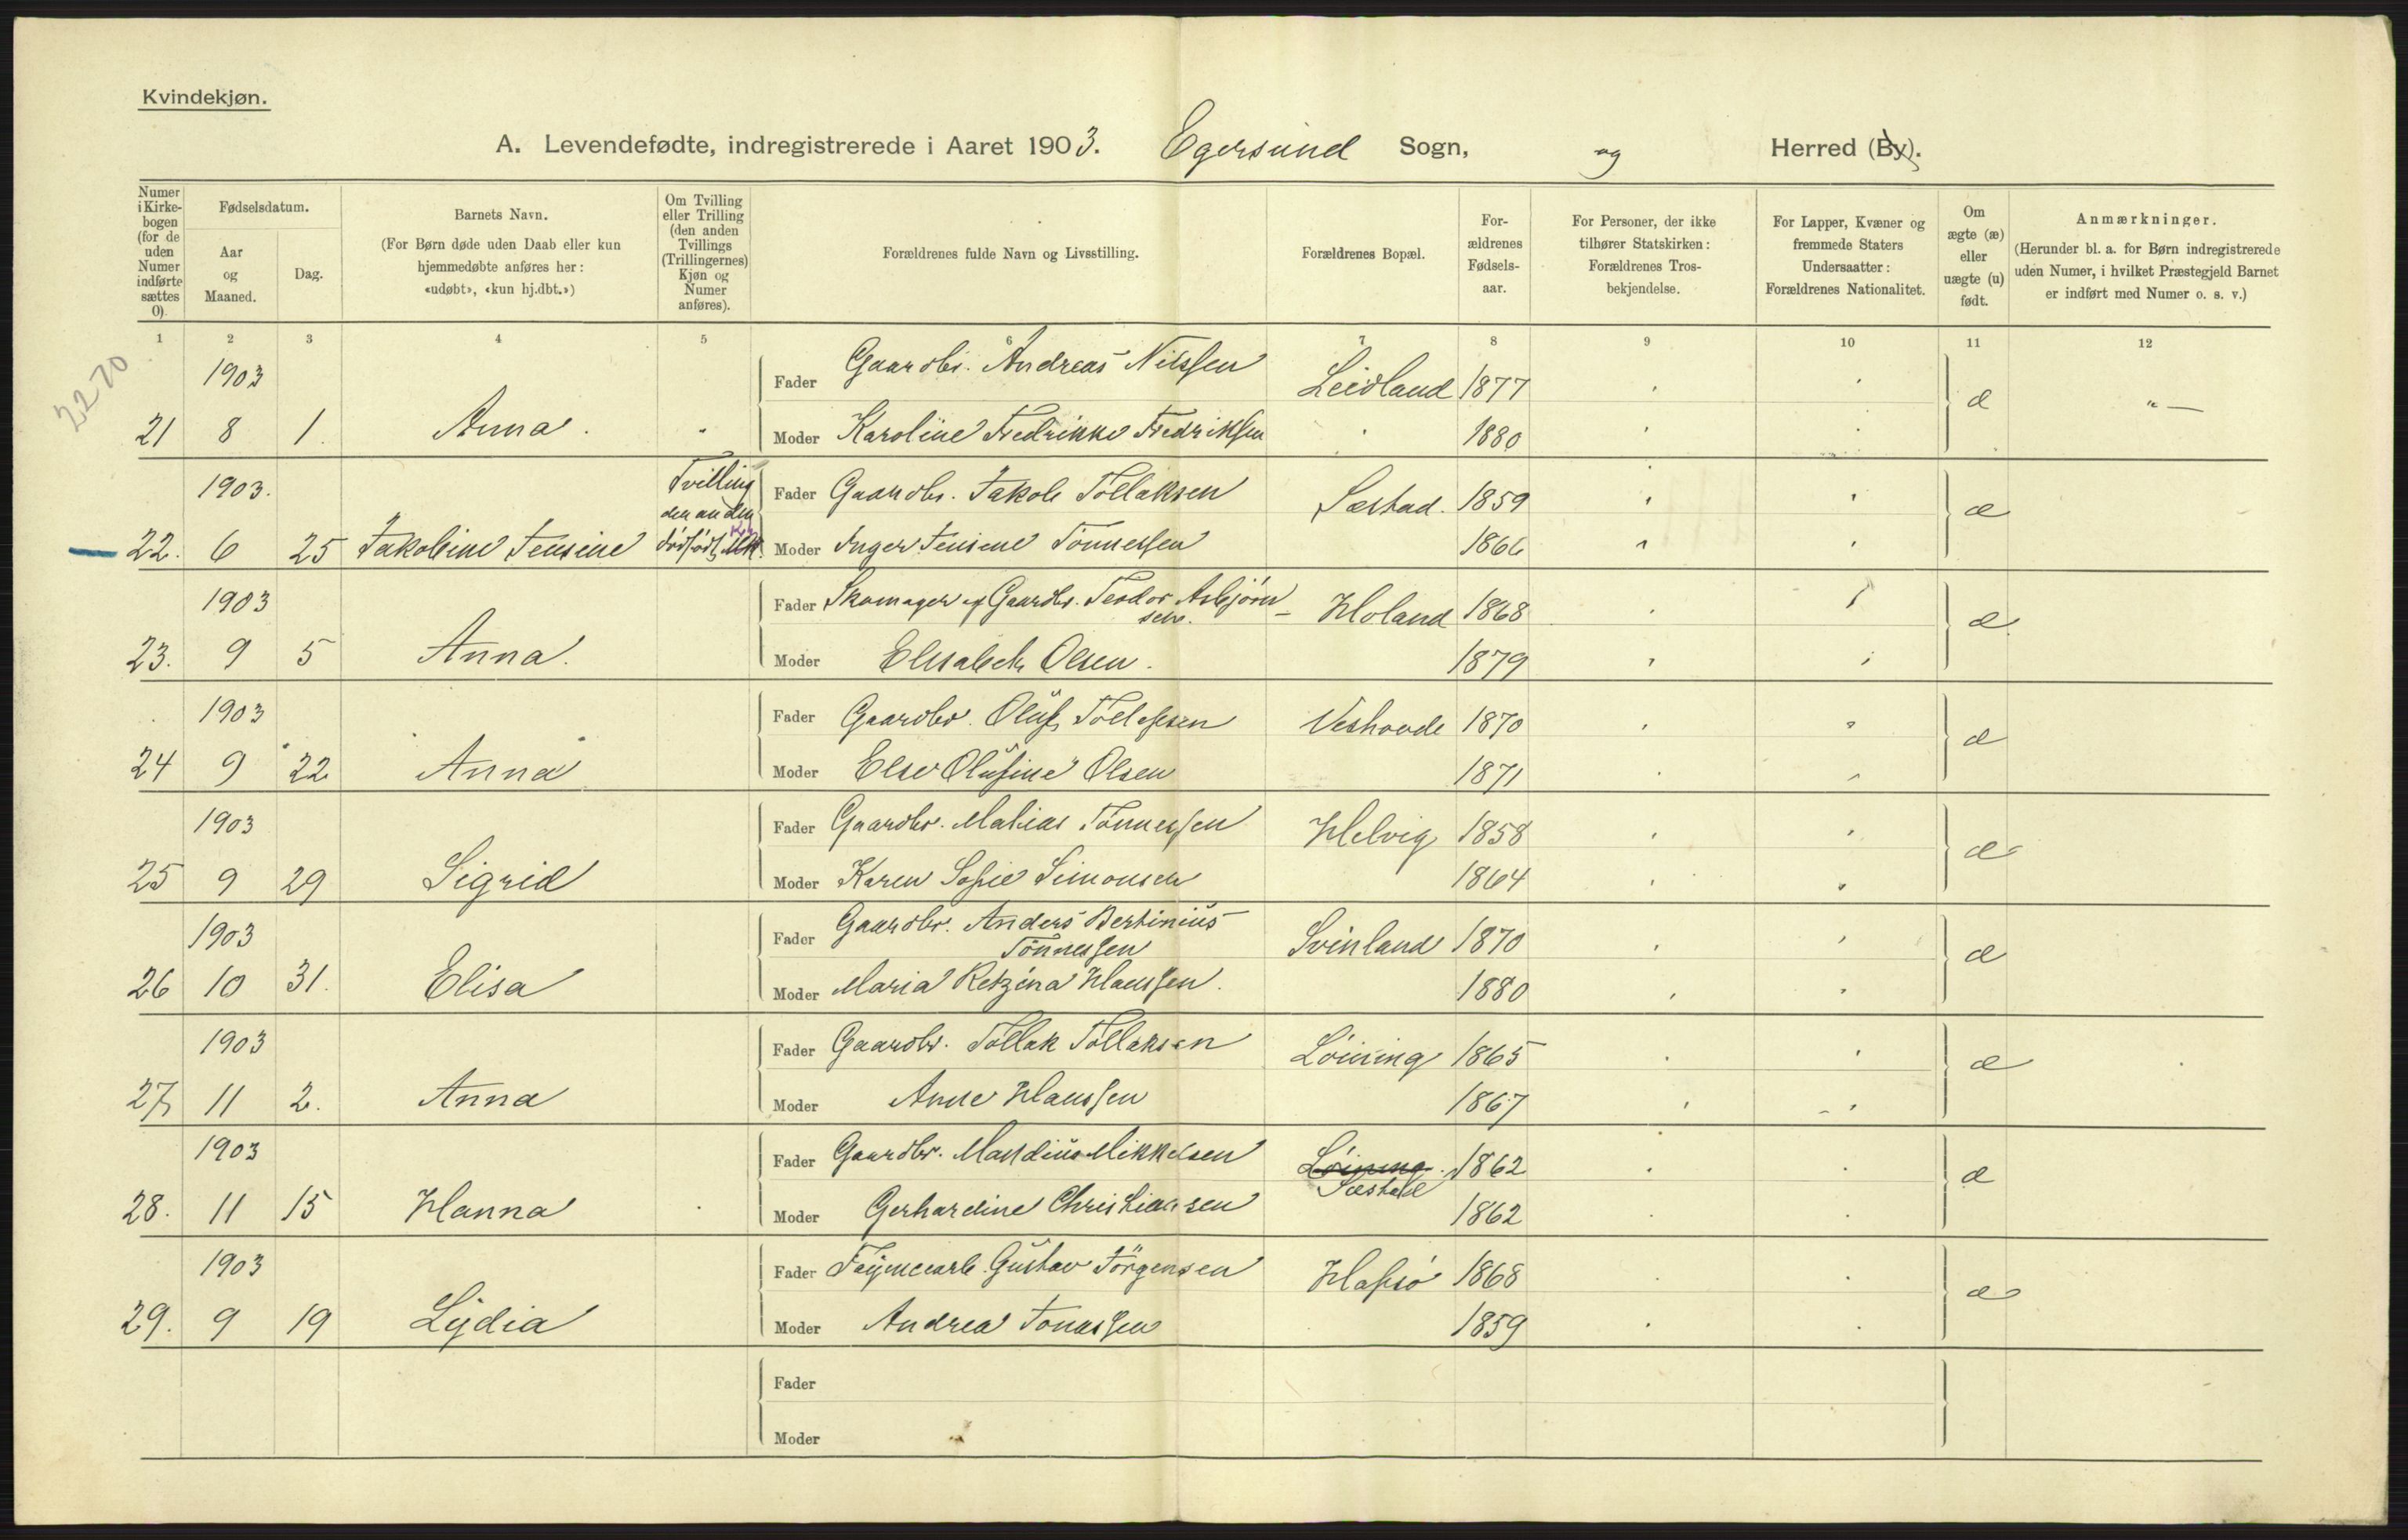 Kvindekjøn.
A. Levendefødte, indregistrerede i Aaret 1903. Egersund Sogn, og Herred (By).
Numer i Kirke-bogen (for de uden Numer indførte sættes 0).
Fødselsdatum.
Aar og Maaned.
Dag.
Barnets Navn.
(For Børn døde uden Daab eller kun hjemmedøbte anføres her: «udøbt», «kun hj.dbt.»)
Om Tvilling eller Trilling (den anden Tvillings (Trillingernes) Kjøn og Numer anføres).
Forældrenes fulde Navn og Livsstilling.
Forældrenes Bopæl.
For-ældrenes Fødsels-aar.
For Personer, der ikke tilhører Statskirken: Forældrenes Tros-bekjendelse.
For Lapper, Kvæner og fremmede Staters Undersaatter: Forældrenes Nationalitet.
Om ægte (æ) eller uægte (u) født.
Anmærkninger.
(Herunder bl. a. for Børn indregistrerede uden Numer, i hvilket Præstegjeld Barnet er indført med Numer o. s. v.)
1 2 3 4 5 6 7 8 9 10 11 12
2270
1903 Fader Gaardbr. Andreas Nilssen Leidland 1877 æ " —
21 8 1. Anna. " Moder Karoline Fredrikke Fredriksen 1880
1903. Tvilling den anden Fader Gaardbr. Jakob Tollaksen Sæstad. 1859 æ
22. 6 25 Jakobine Jensine dødfødt Moder Inger Jensine Tønnessen 1866
1903 Fader Skomager og Gaardbr. Teodor Asbjørn-sen. Hloland 1868 æ
23. 9 5 Anna. Moder Elisabeth Olsen. 1879
1903 Fader Gaardbr. Oluf Tollefsen Veshovde 1870 æ
24 9 22 Anna Moder Else Olufine Olsen 1871
1903 Fader Gaardbr. Matias Tønnessen Helvig 1858 æ
25 9 29 Sigrid Moder Karen Sofie Simonsen 1864
1903 Fader Gaardbr. Anders Bertinius Tønnessen Svinland 1870 æ
26 10 31. Elisa Moder Maria Retzina Hanssen. 1880
1903 Fader Gaardbr. Tollak Tollaksen Løining 1865 æ
27 11 2. Anna Moder Anne Hanssen 1867
1903 Fader Gaardbr. Mandius Mikkelsen Løining Sæstad 1862 æ
28. 11 15 Hanna Moder Gerhardine Christiansen 1862
1903 Fader Gustav Jörgensen Hafsø 1868 æ
29. 9 19 Lydia Moder Andrea Jonassen 1859
Fader
Moder